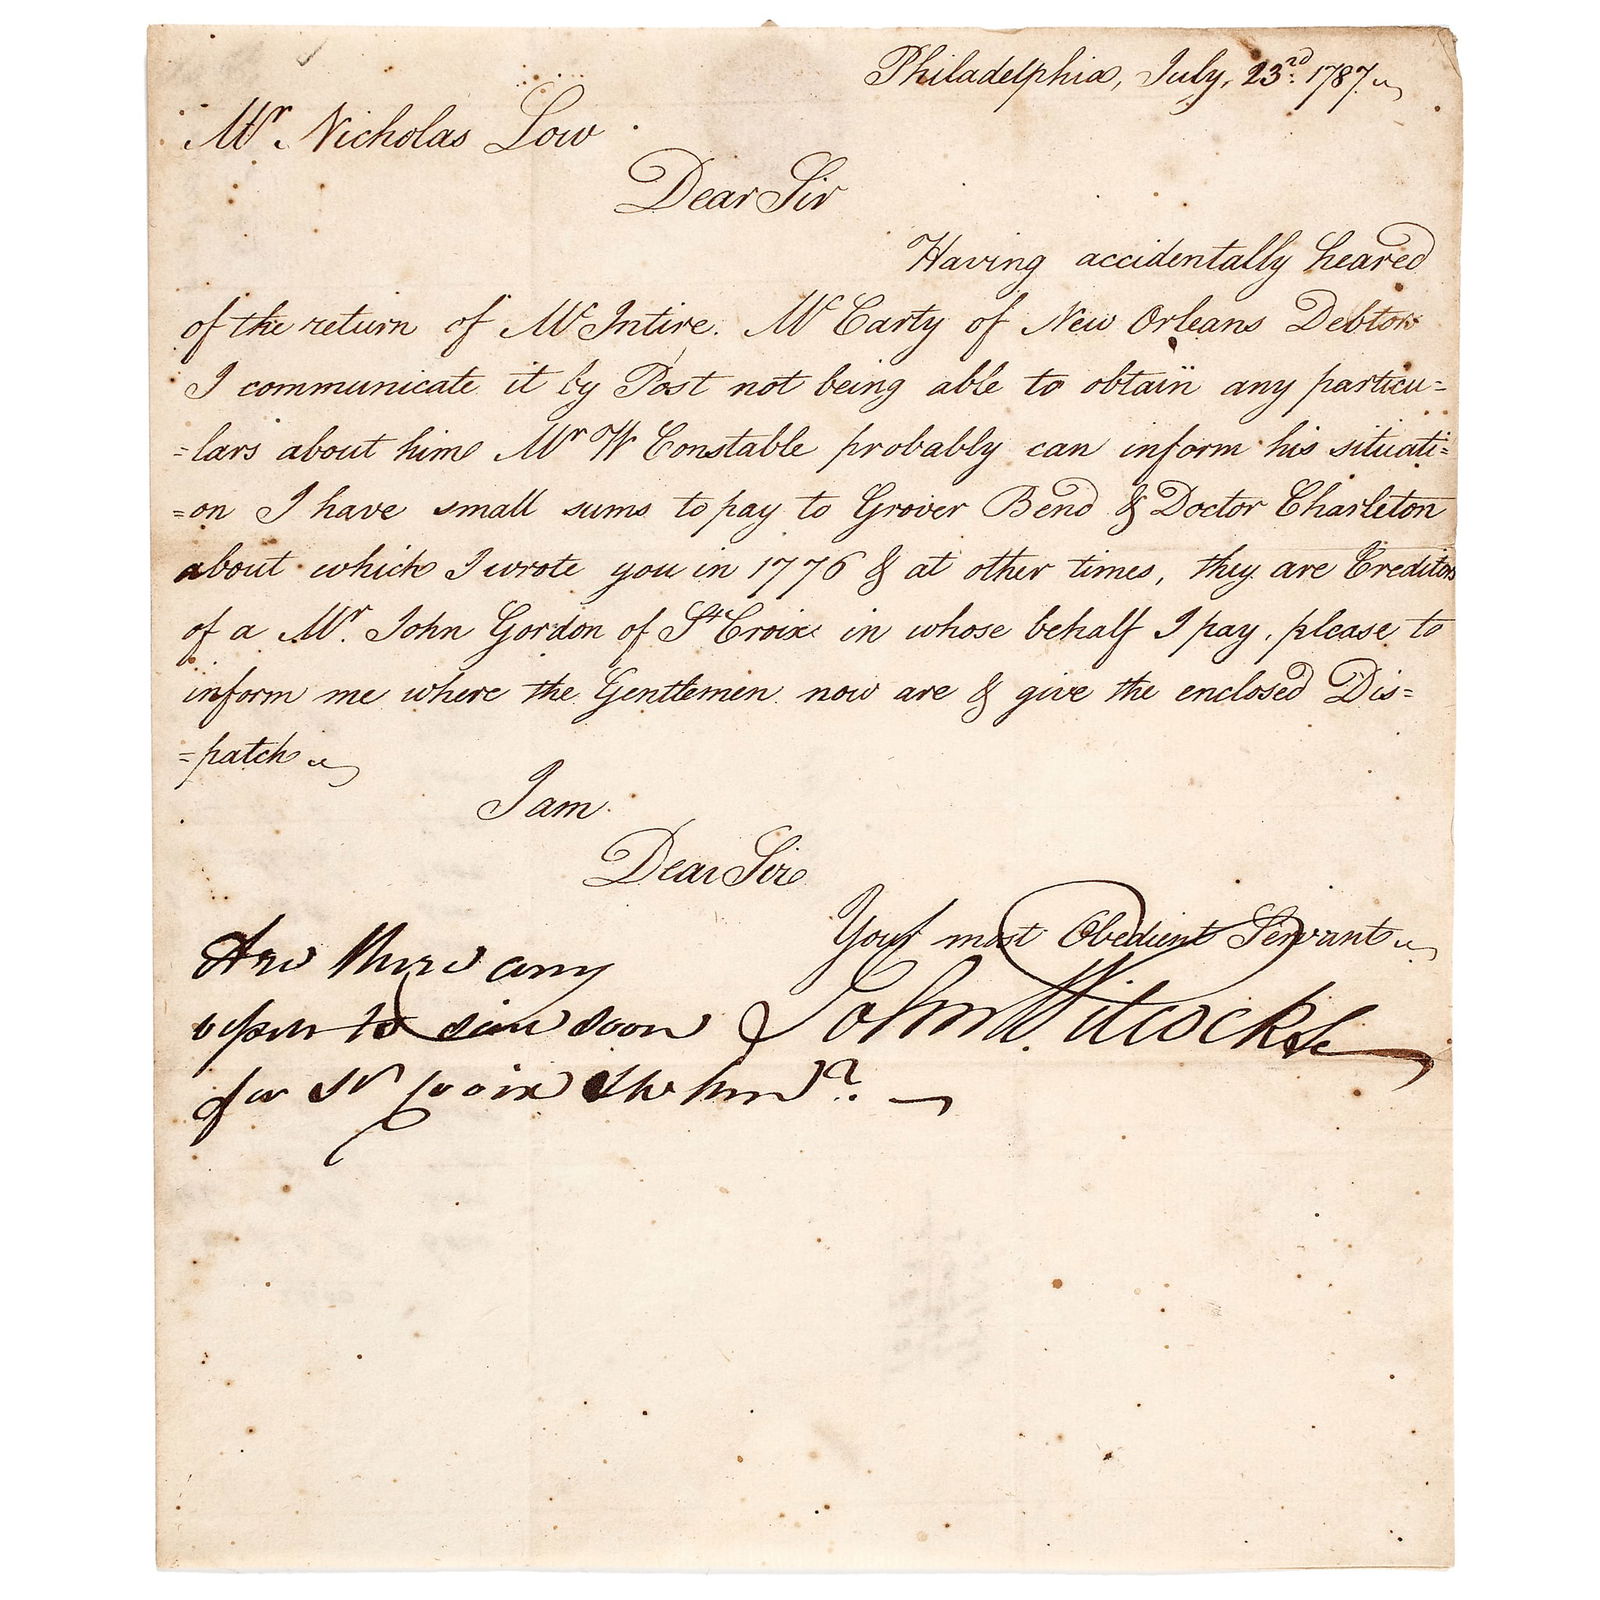 Philadelphia, July, 23rd. 1787
Mr Nicholas Low
Dear Sir
Having accidentally heared
of the return of McIntire. McCarty of New Orleans Debtors
I communicate it by Post not being able to obtain any particu=
=lars about him Mr W Constable probably can inform his situati=
=on I have small sums to pay to Grover Bend & Doctor Charleton
about which I wrote you in 1776 & at other times, they are Creditors
of a Mr. John Gordon of St Croix in whose behalf I pay, please to
inform me where the Gentlemen now are & give the enclosed Dis=
=patch
I am
Dear Sir
Your most Obedient Servant
John Wilcocks
Are there any
to sail soon
for St Croix